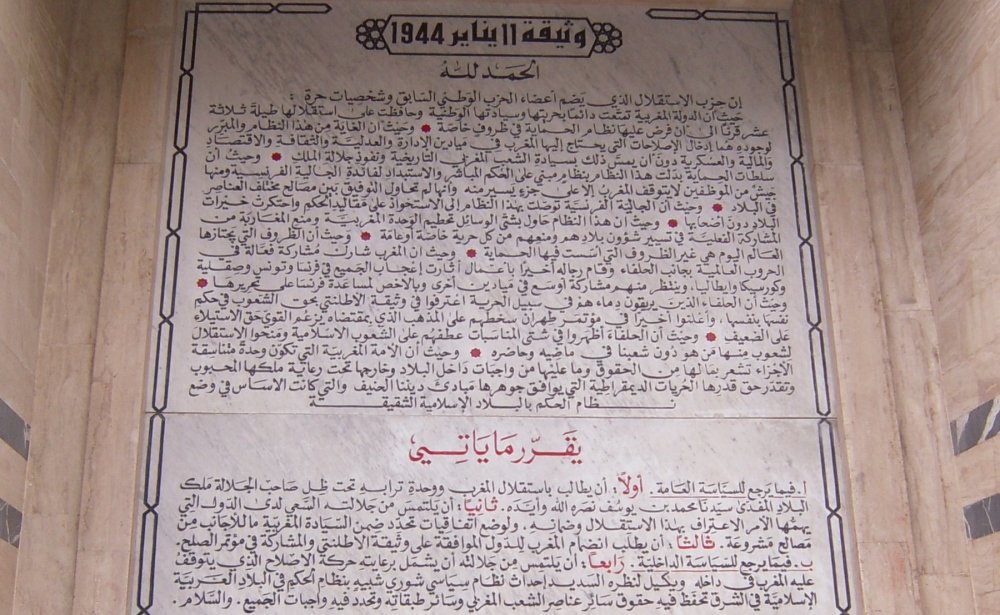 وثيقة 11 يناير 1944
الحمد لله
إن حزب الاستقلال الذي يضم أعضاء الحزب الوطني السابق وشخصيات حرة :
حيث أن الدولة المغربية تمتعت دائما بحريتها وسيادتها الوطنية وحافظت على استقلالها طيلة ثلاثة
عشر قرنا الى ان فرض عليها نظام الحماية في ظروف خاصة وحيث أن الغاية من هذا النظام والمبرر
لوجوده هما إدخال الإصلاحات التي يحتاج إليها المغرب في ميادين الإدارة والعدلية والثقافة والاقتصاد
والمالية والعسكرية دون ان يمس ذلك بسيادة الشعب المغربي التاريخية ونفوذ جلالة الملك وحيث ان
سلطات الحماية بدلت هذا النظام بنظام مبني على الحكم المباشر والاستبداد لفائدة الجالية الفرنسية ومنها
جيش من الموظفين لا يتوقف المغرب إلا على جزء يسير منه وانها لم تحاول التوفيق بين مصالح مختلف العناصر
في البلاد وحيث أن الجالية الفرنسية توصلت بهذا النظام إلى الاستحواذ على مقاليد الحكم واحتكرت خيرات
البلاد دون أصحابها وحيث أن هذا النظام حاول بشتى الوسائل تحطيم الوحدة المغربية ومنع المغاربة من
المشاركة الفعلية في تسيير شؤون بلادهم ومنعهم من كل حرية خاصة أو عامة وحيث أن الظروف التي يجتازها
العالم اليوم هي غير الظروف التي أسست فيها الحماية وحيث ان المغرب شارك مشاركة فعالة في
الحروب العالمية بجانب الحلفاء وقام رجاله أخيرا بأعمال أثارت إعجاب الجميع في فرنسا وتونس وصقلية
وكورسيكا وإيطاليا، وينظر منهم مشاركة أوسع في ميادين أخرى وبالأخص لمساعدة فرنسا على تحريرها
وحيث أن الحلفاء الذين يريقون دماءهم في سبيل الحرية اعترفوا في وثيقة الأطلنتي بحق الشعوب في حكم
نفسها بنفسها، وأعلنوا أخيرا في مؤتمر طهران سخطهم على المذهب الذي بمقتضاه يزعم القوي حق الاستيلاء
على الضعيف وحيث أن الحلفاء أظهروا في شتى المناسبات عطفهم على الشعوب الاسلامية ومنحوا الاستقلال
لشعوب منها من هو دون شعبنا في ماضيه وحاضره وحيث أن الأمة المغربية التي تكون وحدة متناسقة
الأجزاء تشعر بما لها من الحقوق وما عليها من واجبات داخل البلاد وخارجها تحت رعاية ملكها المحبوب
وتقدر حق قدرها الحريات الديمقراطية التي يوافق جوهرها مبادئ ديننا الحنيف والتي كانت الأساس في وضع
نظام الحكم بالبلاد الإسلامية الشقيقة
يقرر ما ياتي
أ. فيما يرجع للسياسة العامة. أولاً: أن يطالب باستقلال المغرب ووحدة ترابه تحت ظل صاحب الجلالة ملك
البلاد المفدى سيدنا محمد بن يوسف نصره الله وأيده. ثانياً: أن يلتمس من جلالته السعي لدى الدول التي
يهمها الأمر الاعتراف بهذا الاستقلال وضمانه، ولوضع اتفاقيات تحدد ضمن السيادة المغربية ما للأجانب من
مصالح مشروعة. ثالثاً: ان يطلب انضمام المغرب للدول الموافقة على وثيقة الأطلنتي والمشاركة في مؤتمر الصلح.
ب. فيما يرجع للسياسة الداخلية. رابعاً: أن يلتمس من جلالته أن يشمل برعايته حركة الاصلاح الذي يتوقف
عليه المغرب في داخله ويكل لنظره السديد إحداث نظام سياسي شوري شبيه بنظام الحكم في البلاد العربية
الإسلامية في الشرق تحفظ فيه حقوق سائر عناصر الشعب المغربي وسائر طبقاته وتحدد فيه واجبات الجميع. والسلام.